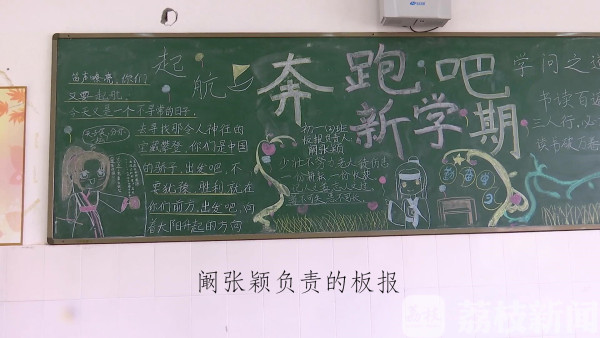 起航
笛声嘹亮，你们
又要起航。
今天又是一个不寻常的日子。
去寻找那令人神往的
宝藏攀登，你们是中国
的骄子，出发吧，不
要犹豫，胜利就在
你们前方，出发吧，向
着太阳升起的方向
奔跑吧
新学期
初一四班
板报负责人
阚张颖
少壮不努力老大徒伤悲
一份耕耘一份收获
学问之
书读百
三人行，必
读书破万卷
阚张颖负责的板报
荔枝
荔枝新闻